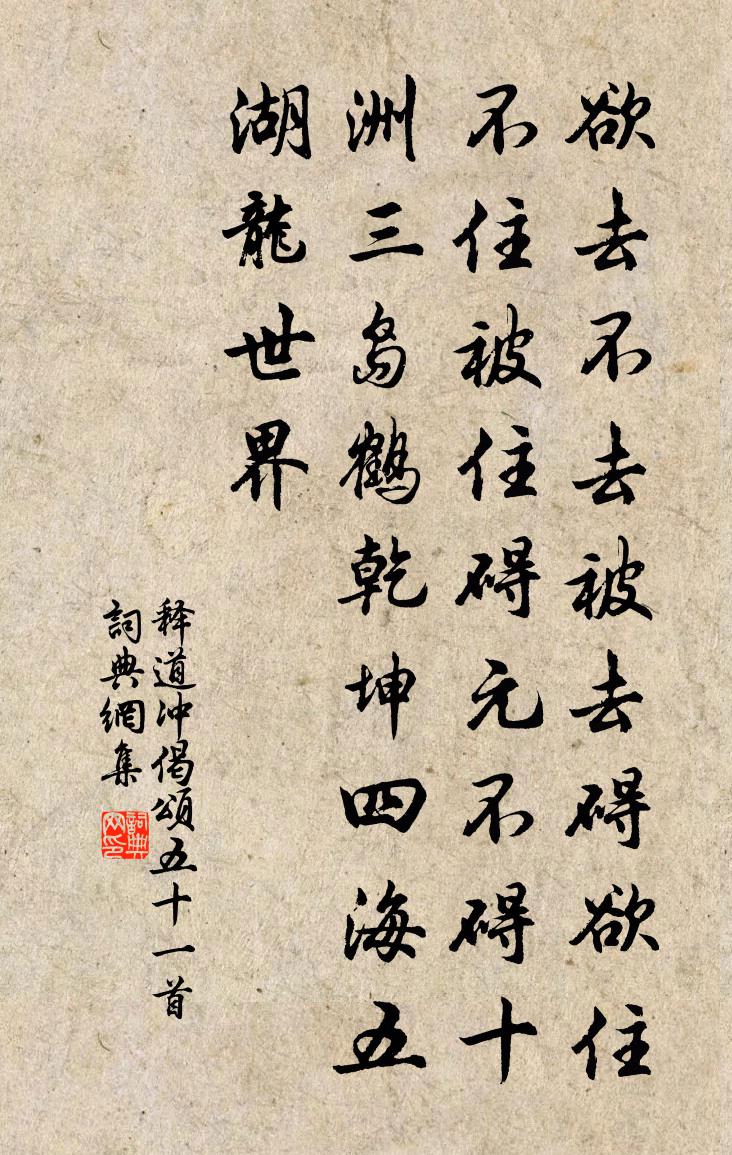 欲去不去被去碍欲住
不住被住碍元不碍十
洲三岛鹤乾坤四海五
湖龍世界
释道冲偈頌五十一首
詞典網集
詞典网印